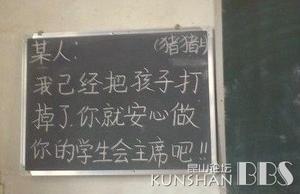 某人: (猪猪
我己经把孩子打
掉了,你就安心做
你的学生会主席吧!!
昆山论坛
KUNSHAN BBS